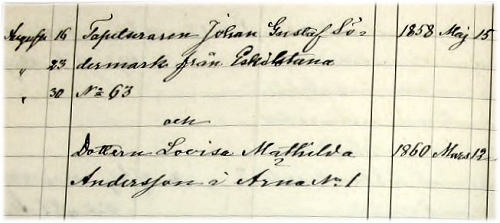 Augusti 16 Tapetseraren Johan Gustaf Sö- 1858 Maj 15
" 23 dermark från Eskilstuna
" 30 No 63
och
Dottern Lovisa Mathilda 1860 Mars 12
Andersson i Arna No 1